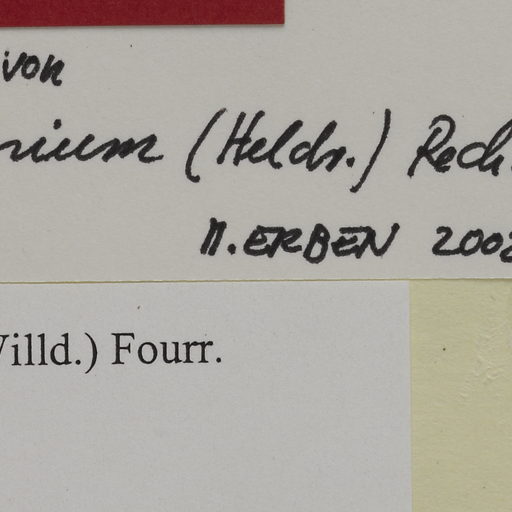 von
nium (Heldr.) Rech.
M. ERBEN 2002
Willd.) Fourr.